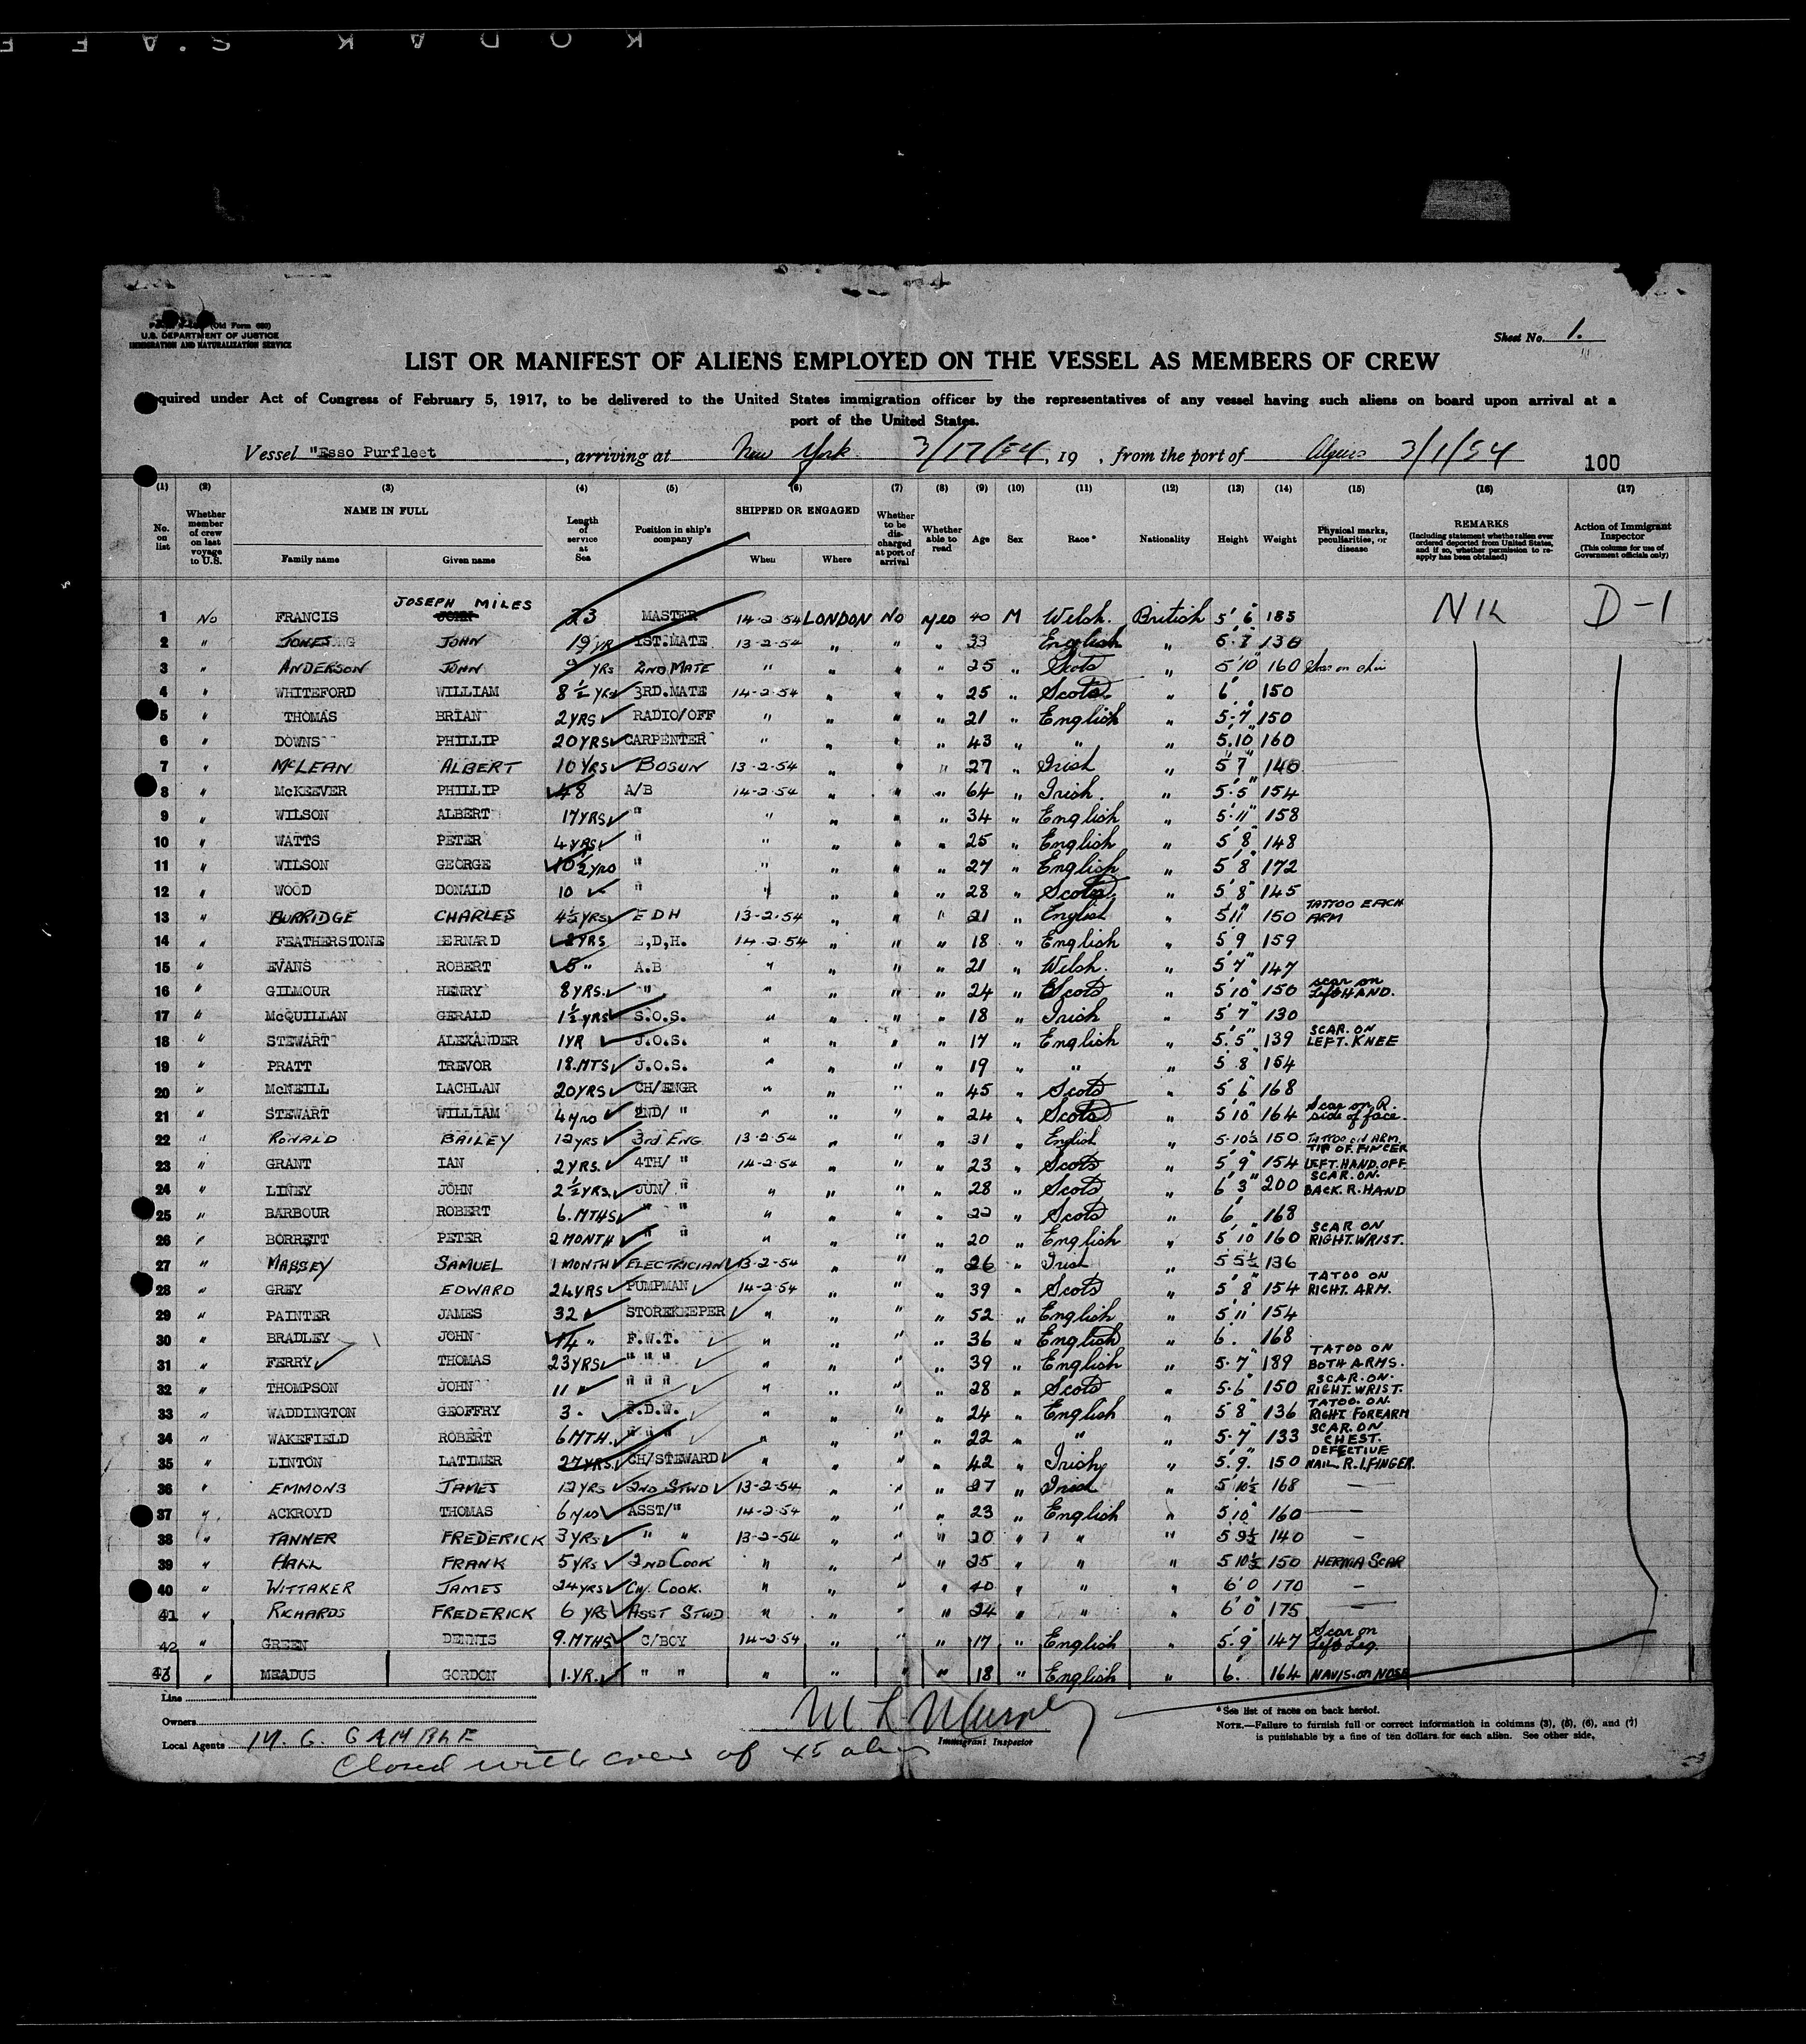 KODAK S.A F E
(Old Form 680)
U.S. DEPARTMENT OF JUSTICE
IMMIGRATION AND NATURALIZATION SERVICE
Sheet No. 1.
LIST OR MANIFEST OF ALIENS EMPLOYED ON THE VESSEL AS MEMBERS OF CREW
quired under Act of Congress of February 5, 1917, to be delivered to the United States immigration officer by the representatives of any vessel having such aliens on board upon arrival at a
port of the United States.
Vessel "Esso Purfleet , arriving at New York 3/17/54, 19 , from the port of Algiers 3/1/54 100
(1) (2) (3) (4) (5) (6) (7) (8) (9) (10) (11) (12) (13) (14) (15) (16) (17)
No. on list Whether member of crew on last voyage to U.S. NAME IN FULL Family name Given name Length of service at Sea Position in ship's company SHIPPED OR ENGAGED When Where Whether to be discharged at port of arrival Whether able to read Age Sex Race* Nationality Height Weight Physical marks, peculiarities, or disease REMARKS (Including statement whether alien ever ordered deported from United States, and if so, whether permission to reapply has been obtained) Action of Immigrant Inspector (This column for use of Government officials only)
JOSEPH MILES
1 No FRANCIS JOHN 23 MASTER 14-2-54 LONDON No yes 40 M Welsh. British 5' 6" 185 NIL D-1
2 " JONES JOHN 19 YR 1ST.MATE 13-2-54 " " " 33 English " 5.7 130
3 " ANDERSON JOHN 9 YRS 2ND MATE " " " " 25 " Scots " 5'10" 160 Scar on chin
4 " WHITEFORD WILLIAM 8½ YRS 3RD.MATE 14-2-54 " " " 25 " Scots " 6' 150
5 " THOMAS BRIAN 2YRS RADIO/OFF " " " " 21 " English " 5.7" 150
6 " DOWNS PHILLIP 20YRS CARPENTER " " " " 43 " " " 5.10" 160
7 " McLEAN ALBERT 10 YRS BOSUN 13-2-54 " " " 27 " Irish " 5'7" 140
8 " McKEEVER PHILLIP 48 A/B 14-2-54 " " " 64 " Irish. " 5.5" 154
9 " WILSON ALBERT 17YRS " " " " " 34 " English " 5.11" 158
10 " WATTS PETER 4YRS " " " " " 25 " English " 5'8" 148
11 " WILSON GEORGE 10½yrs " " " " " 27 " English " 5'8" 172
12 " WOOD DONALD 10 " " " " " 28 " Scots " 5'8" 145
13 " BURRIDGE CHARLES 4½YRS E D H 13-2-54 " " " 21 " English " 5'11" 150 TATTOO EACH ARM
14 " FEATHERSTONE BERNARD 2YRS E,D,H. 14-2-54 " " " 18 " English " 5'9 159
15 " EVANS ROBERT 5 " A.B " " " " 21 " Welsh. " 5'7" 147
16 " GILMOUR HENRY 8YRS. " " " " " 24 " Scots " 5'10" 150 scar on Left HAND.
17 " McQUILLAN GERALD 1½YRS S.O.S. " " " " 18 " Irish " 5'7" 130
18 " STEWART ALEXANDER 1YR J.O.S. " " " " 17 " English " 5.5" 139 SCAR. ON LEFT. KNEE
19 " PRATT TREVOR 18.MTS J.O.S. " " " " 19 " " " 5'8" 154
20 " McNEILL LACHLAN 20YRS CH/ENGR " " " " 45 " Scots " 5'6" 168
21 " STEWART WILLIAM 4yrs 2ND/ " " " " " 24 " Scots " 5'10" 164 Scar on R. side of face.
22 " RONALD BAILEY 12yrs 3rd ENG. 13-2-54 " " " 31 " English " 5-10½ 150 TATTOO on ARM
23 " GRANT IAN 2YRS. 4TH/ " 14-2-54 " " " 23 " Scots " 5'9" 154 TIP OF FINGER LEFT.HAND.OFF
24 " LINEY JOHN 2½YRS. JUN/ " " " " " 28 " Scots " 6'3" 200 SCAR.ON. BACK.R.HAND
25 " BARBOUR ROBERT 6.MTHS " " " " " " 22 " Scots " 6' 168
26 " BORRETT PETER 2MONTH " " " " " " 20 " English " 5'10" 160 SCAR ON RIGHT.WRIST.
27 " MASSEY SAMUEL 1 MONTH ELECTRICIAN 13-2-54 " " " 26 " Irish " 5 5½ 136
28 " GREY EDWARD 24YRS PUMPMAN 14-2-54 " " " 39 " Scots " 5'8" 154 TATOO ON RIGHT. ARM.
29 " PAINTER JAMES 32 STOREKEEPER " " " " 52 " English " 5'11" 154
30 " BRADLEY JOHN 14 " F.W.T. " " " " 36 " English " 6'. 168
31 " FERRY THOMAS 23YRS " " " " " " " 39 " English " 5.7" 189 TATOO ON BOTH ARMS.
32 " THOMPSON JOHN 11 " " " " " " " " 28 " Scots " 5.6" 150 SCAR.ON. RIGHT.WRIST.
33 " WADDINGTON GEOFFRY 3. F.D.W. " " " " 24 " English " 5'8" 136 TATOO. ON. RIGHT FOREARM
34 " WAKEFIELD ROBERT 6MTH. " " " " " " " 22 " " " 5.7" 133 SCAR.ON CHEST.
35 " LINTON LATIMER 27YRS. CH/STEWARD " " " " 42 " Irish " 5'.9." 150 DEFECTIVE NAIL R.I.FINGER.
36 " EMMONS JAMES 12YRS 2ND STWD 13-2-54 " " " 27 " Irish " 5'10½ 168 —
37 " ACKROYD THOMAS 6yrs ASST/" 14-2-54 " " " 23 " English " 5'10" 160 —
38 " TANNER FREDERICK 3YRS " " 13-2-54 " " " 20 " " " 5 9½ 140 —
39 " HALL FRANK 5YRS 2ND COOK " " " " 25 " " " 5 10½ 150 HERNIA SCAR
40 " WITTAKER JAMES 24YRS CH. COOK. " " " " 40 " " " 6'0 170 —
41 " RICHARDS FREDERICK 6 YRS ASST STWD " " " " 24 " " " 6'0" 175 —
42 " GREEN DENNIS 9.MTHS C/BOY 14-2-54 " " " 17 " English " 5.9" 147 Scar on Left Leg.
43 " MEADUS GORDON 1.YR. " " " " " " 18 " English " 6'. 164 NAVIS.on NOSE
Line
Owners
Local Agents M. G. GAMBLE
Immigrant Inspector
Closed with crew of 45 aliens
* See list of races on back hereof.
NOTE.—Failure to furnish full or correct information in columns (3), (5), (6), and (7)
is punishable by a fine of ten dollars for each alien. See other side.